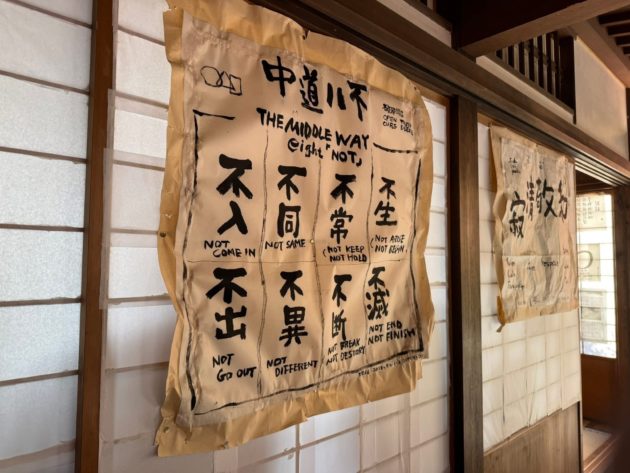 中道八不
THE MIDDLE WAY
eight「NOT」
不入
NOT
COME IN
不同
NOT SAME
不常
NOT KEEP
NOT HOLD
不生
NOT ARISE
NOT BEGAN
不出
NOT
GO OUT
不異
NOT
DIFFERENT
不断
NOT BREAK
NOT DESTROY
不滅
NOT END
NOT FINISH
寂清敬和